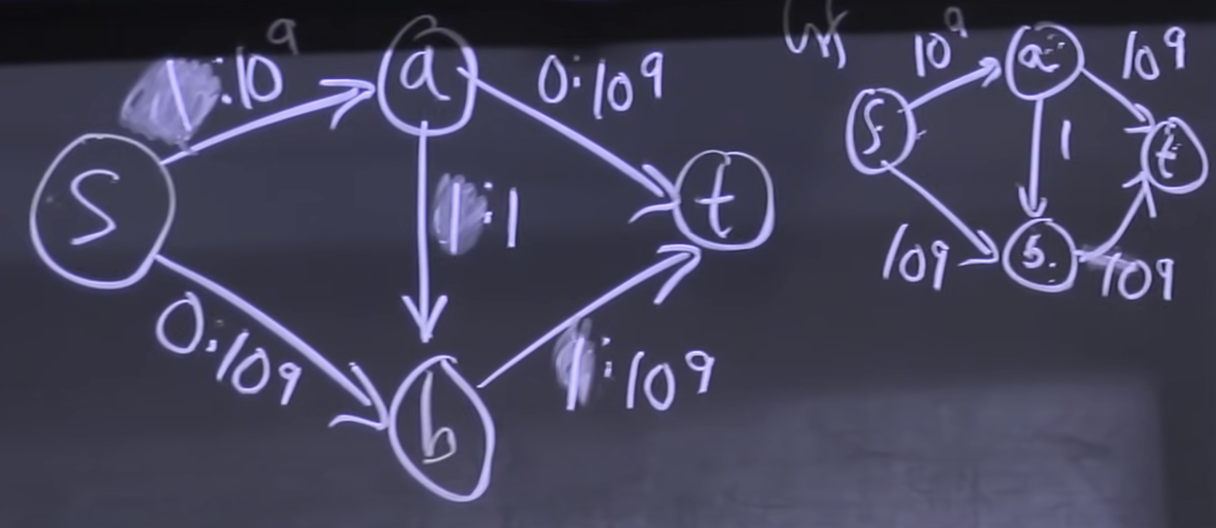 1:10⁹
a
0:10⁹
S
1:1
t
0:10⁹
b
1:10⁹
Gf
10⁹
a
10⁹
S
1
t
10⁹
b
10⁹